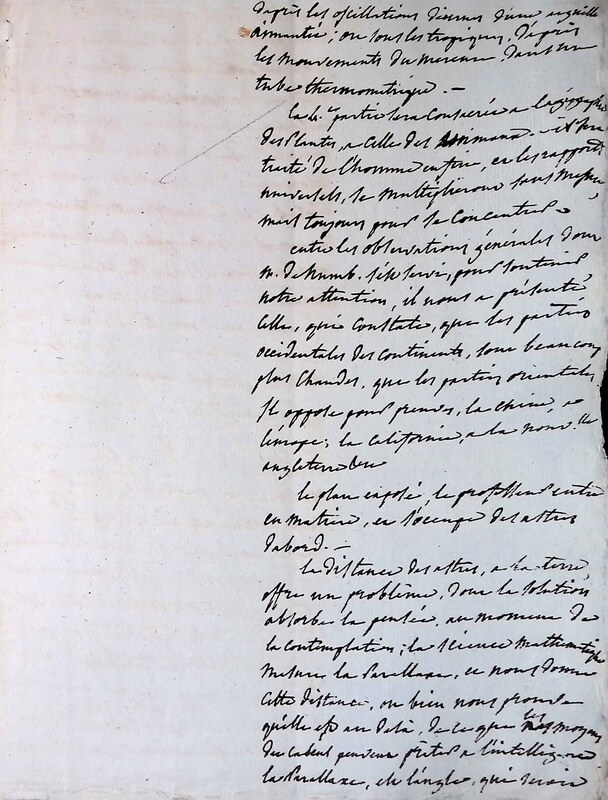 d'après les oscillations diurnes d'une aiguille
aimantée; ou sous les tropiques, d'après
les mouvements du mercure dans un
tube thermométrique. —
la 4e partie sera consacrée a la géographie
des plantes, a celle des animaux. — il sera
traité de l'homme enfin, et les rapports
universels, se multiplieront sans mesure,
mais toujours pour se concentrer.
entre les observations générales dont
m. de humb. s'est servi, pour soutenir
notre attention, il nous a présenté
celle, qui constate, que les parties
occidentales des continents, sont beaucoup
plus chaudes, que les parties orientales.
il oppose pour preuves, la chine, a
l'europe; la californie, a la nouv.lle
angleterre &c
le plan exposé, le professeur entre
en matière, et s'occupe des astres
d'abord. —
la distance des astres, a la terre,
offre un problème, dont la solution
absorbe la pensée, au moment de
la contemplation; la science mathématique
mesure la parallaxe, et nous donne
cette distance, ou bien nous prouve
qu'elle est au delà, de ce que les moyens
du calcul peuvent prêter a l'intelligence
la parallaxe, est l'angle, qui seroit